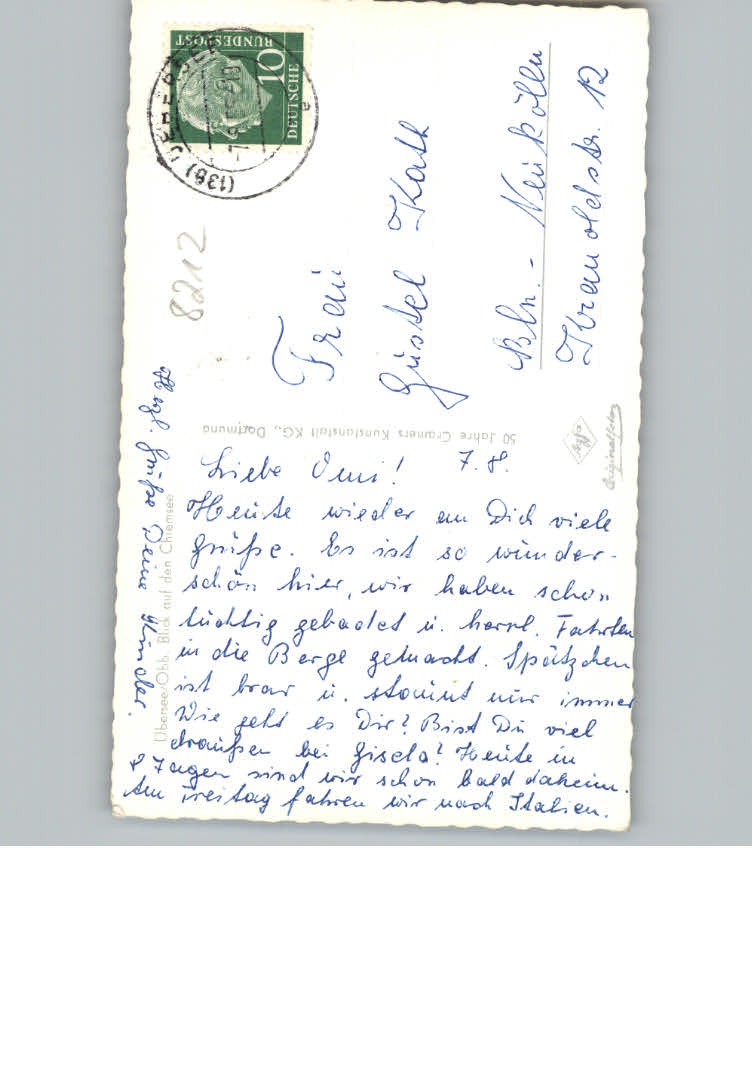 DEUTSCHE
BUNDESPOST
10
(13b) ÜBERSEE
a
8212
Frau
Gustel Kath
Bln. - Neukölln
Kranoldstr. 12
50 Jahre Cramers Kunstanstalt KG., Dortmund
Agfa
Originalfoto
Übersee/Obb. Blick auf den Chiemsee
Liebe Omi! 7. 8.
Heute wieder an Dich viele
Grüße. Es ist so wunder-
schön hier, wir haben schon
tüchtig gebadet u. herrl. Fahrten
in die Berge gemacht. Spätzchen
ist brav u. staunt nur immer
Wie geht es Dir? Bist Du viel
draußen bei Gisela? Heute in
8 Tagen sind wir schon bald daheim.
Am Freitag fahren wir nach Italien.
Herzl. Grüße Deine Kinder.